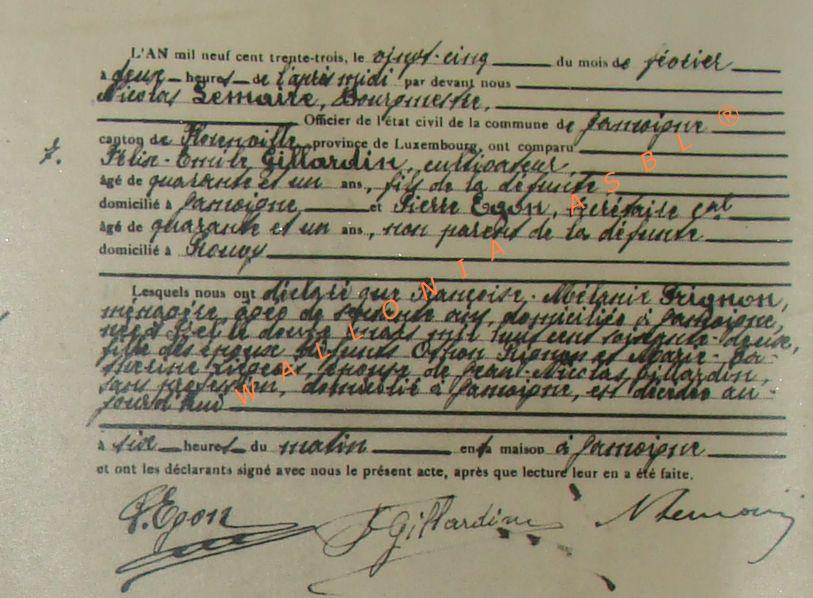 L'AN mil neuf cent trente-trois, le vingt-cinq du mois de février
à deux heures de l'après midi par devant nous
Nicolas Lemaire, Bourgmestre,
Officier de l'état civil de la commune de Jamoigne
canton de Florenville province de Luxembourg, ont comparu
7. Félix-Emile Gillardin, cultivateur
âgé de quarante et un ans, fils de la défunte
domicilié à Jamoigne et Pierre Egon, secrétaire cal
âgé de quarante et un ans, non parent de la défunte
domicilié à Prouvy
Lesquels nous ont déclaré que Françoise-Mélanie Frignon,
ménagère, âgée de septante ans, domiciliée à Jamoigne,
née le douze mars mil huit cent soixante-deux,
fille des époux défunts Frignon et Marie-Ca-
therine épouse de Jean-Nicolas Gillardin,
sans profession, domicilié à Jamoigne, est décédée au-
jourd'hui
à six heures du matin en sa maison à Jamoigne
et ont les déclarants signé avec nous le présent acte, après que lecture leur en a été faite.
P. Egon F Gillardin N Lemaire
WALLONIA ASBL ®